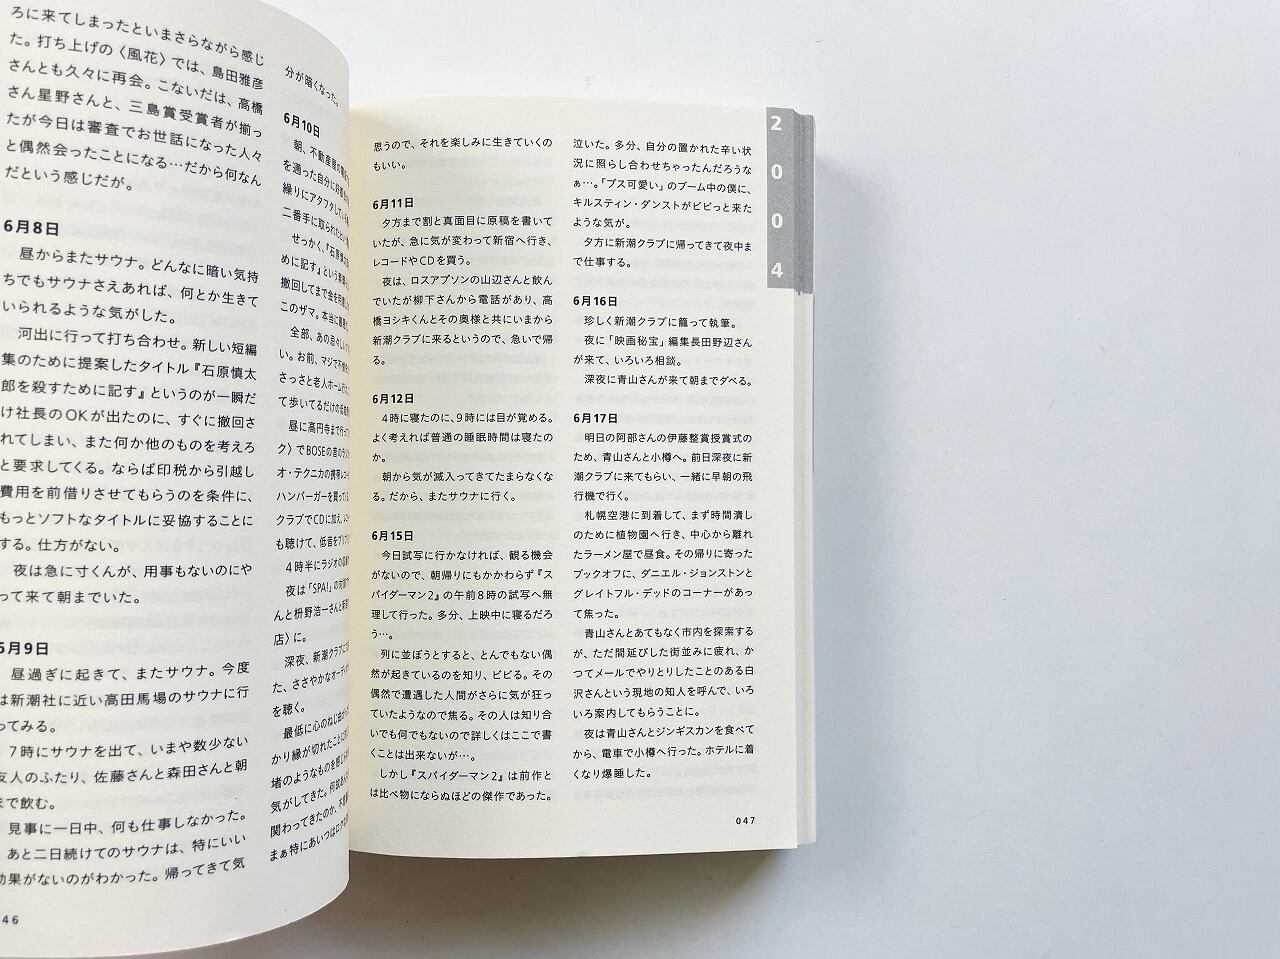 ろに来てしまったといまさらながら感じ
た。打ち上げの〈風花〉では、島田雅彦
さんとも久々に再会。こないだは、高橋
さん星野さんと、三島賞受賞者が揃っ
たが今日は審査でお世話になった人々
と偶然会ったことになる…だから何なん
だという感じだが。
6月8日
昼からまたサウナ。どんなに暗い気持
ちでもサウナさえあれば、何とか生きて
いられるような気がした。
河出に行って打ち合わせ。新しい短編
集のために提案したタイトル『石原慎太
郎を殺すために記す』というのが一瞬だ
け社長のOKが出たのに、すぐに撤回さ
れてしまい、また何か他のものを考えろ
と要求してくる。ならば印税から引越し
費用を前借りさせてもらうのを条件に、
もっとソフトなタイトルに妥協することに
する。仕方がない。
夜は急に寸くんが、用事もないのにや
って来て朝までいた。
6月9日
昼過ぎに起きて、またサウナ。今度
は新潮社に近い高田馬場のサウナに行
ってみる。
7時にサウナを出て、いまや数少ない
友人のふたり、佐藤さんと森田さんと朝
まで飲む。
見事に一日中、何も仕事しなかった。
あと二日続けてのサウナは、特にいい
効果がないのがわかった。帰ってきて気
46
分が暗くなった。
6月10日
朝、不動産屋の
を通った自分に
繰りにアタフタしてい
二番手に取られたとい
せっかく、『石原慎
めに記す』という
撤回してまで金を
このザマ。本当に
全部、あの忌々し
い。お前、マジで
さっさと老人ホーム
て歩いてるだけの
昼に高円寺まで行っ
ク〉でBOSEの音の
オ・テクニカの携帯
ハンバーガーを買って
クラブでCDに加え、
も聴けて、低音を
4時半にラジオの
夜は「SPA!」の
んと枡野浩一さんと
店〉に。
深夜、新潮クラブに
た、ささやかなオーディ
を聴く。
最低に心のねじ
かり縁が切れたこと
堵のようなものを
気がしてきた。何
関わってきたのか、不
まぁ特にあいつはロク
思うので、それを楽しみに生きていくの
もいい。
6月11日
夕方まで割と真面目に原稿を書いて
いたが、急に気が変わって新宿へ行き、
レコードやCDを買う。
夜は、ロスアプソンの山辺さんと飲ん
でいたが柳下さんから電話があり、高
橋ヨシキくんとその奥様と共にいまから
新潮クラブに来るというので、急いで帰
る。
6月12日
4時に寝たのに、9時には目が覚める。
よく考えれば普通の睡眠時間は寝たの
か。
朝から気が滅入ってきてたまらなくな
る。だから、またサウナに行く。
6月15日
今日試写に行かなければ、観る機会
がないので、朝帰りにもかかわらず『ス
パイダーマン2』の午前8時の試写へ無
理して行った。多分、上映中に寝るだろ
う…。
列に並ぼうとすると、とんでもない偶
然が起きているのを知り、ビビる。その
偶然で遭遇した人間がさらに気が狂っ
ていたようなので焦る。その人は知り合
いでも何でもないので詳しくはここで書
くことは出来ないが…。
しかし『スパイダーマン2』は前作と
は比べ物にならぬほどの傑作であった。
泣いた。多分、自分の置かれた辛い状
況に照らし合わせちゃったんだろうな
ぁ…。「ブス可愛い」のブーム中の僕に、
キルスティン・ダンストがビビっと来た
ような気が。
夕方に新潮クラブに帰ってきて夜中ま
で仕事する。
6月16日
珍しく新潮クラブに籠って執筆。
夜に「映画秘宝」編集長田野辺さん
が来て、いろいろ相談。
深夜に青山さんが来て朝までダベる。
6月17日
明日の阿部さんの伊藤整賞授賞式の
ため、青山さんと小樽へ。前日深夜に新
潮クラブに来てもらい、一緒に早朝の飛
行機で行く。
札幌空港に到着して、まず時間潰し
のために植物園へ行き、中心から離れ
たラーメン屋で昼食。その帰りに寄った
ブックオフに、ダニエル・ジョンストンと
グレイトフル・デッドのコーナーがあっ
て焦った。
青山さんとあてもなく市内を探索する
が、ただ間延びした街並みに疲れ、か
つてメールでやりとりしたことのある白
沢さんという現地の知人を呼んで、いろ
いろ案内してもらうことに。
夜は青山さんとジンギスカンを食べて
から、電車で小樽へ行った。ホテルに着
くなり爆睡した。
047
2
0
0
4